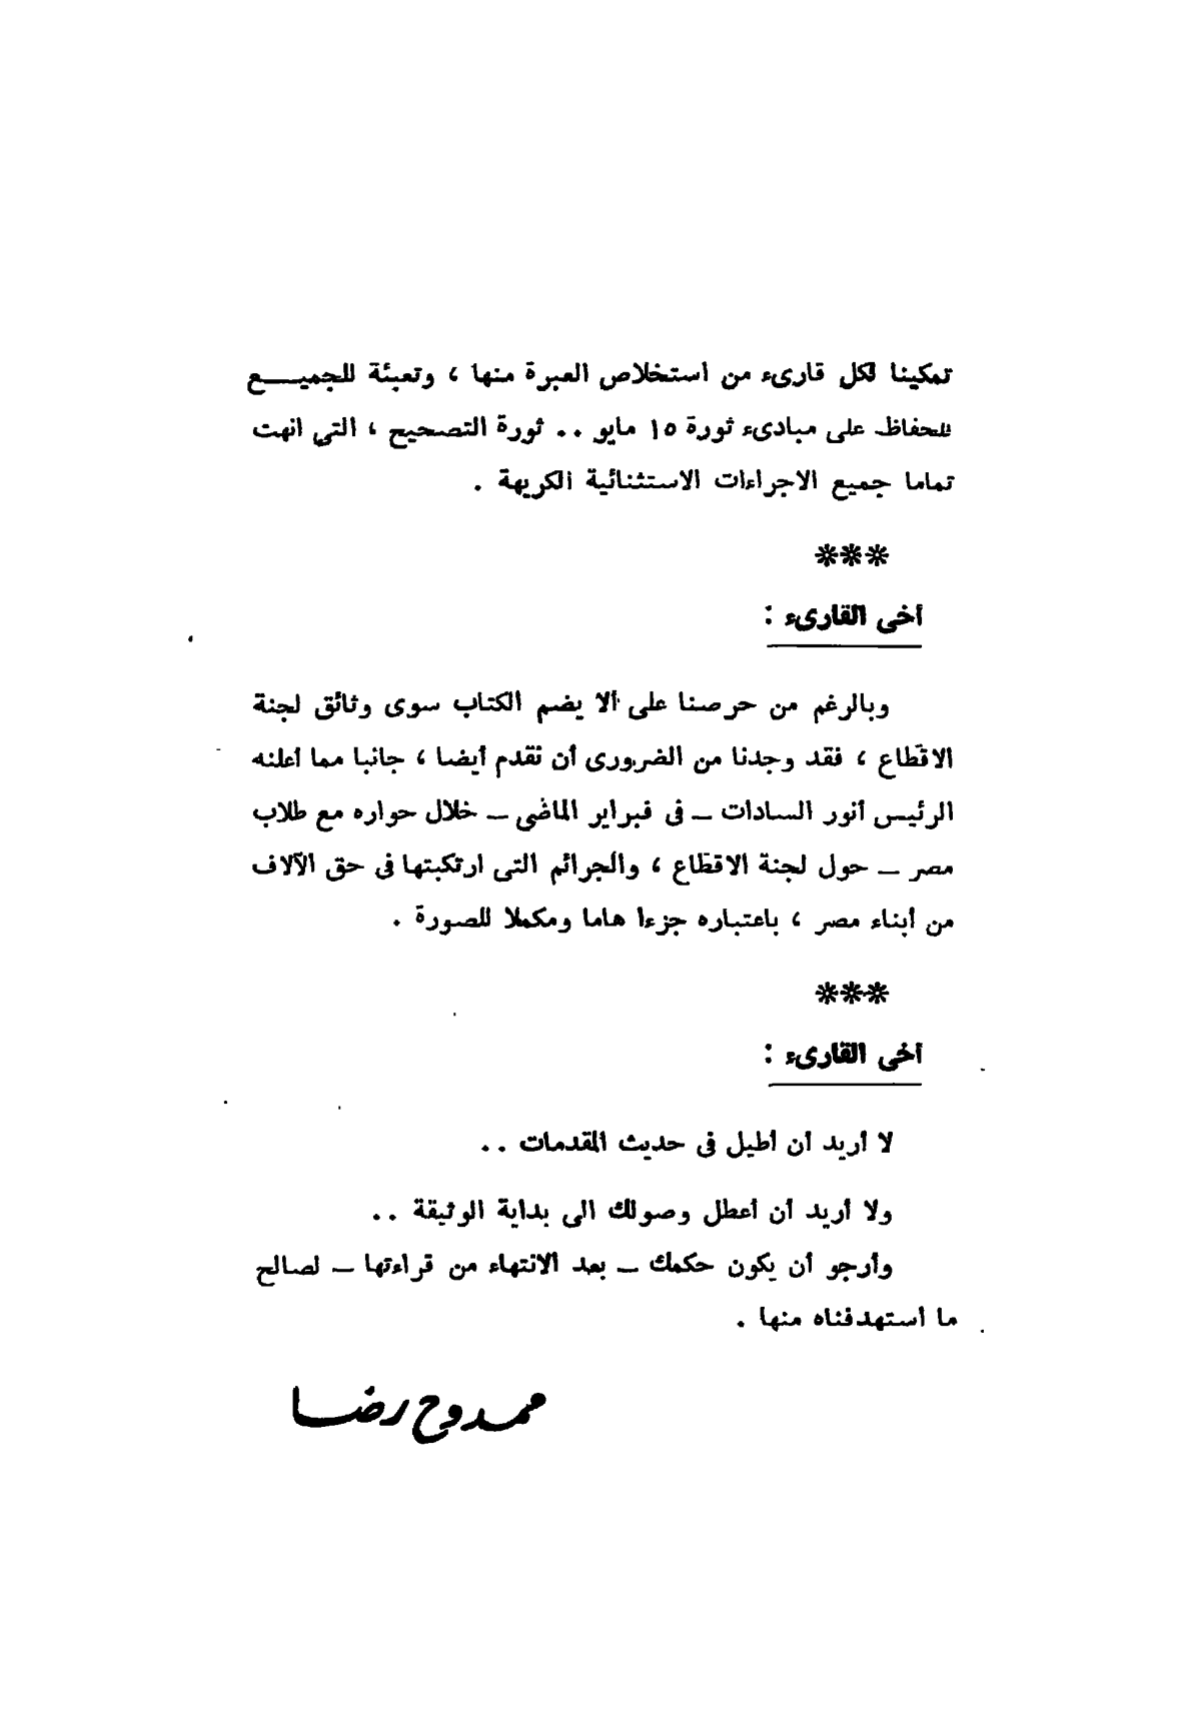 تمكينا لكل قارىء من استخلاص العبرة منها ، وتعبئة للجميـــع
للحفاظ على مبادىء ثورة ١٥ مايو .. ثورة التصحيح ، التي انهت
تماما جميع الاجراءات الاستثنائية الكريهة .
***
أخى القارىء :
وبالرغم من حرصنا على ألا يضم الكتاب سوى وثائق لجنة
الاقطاع ، فقد وجدنا من الضرورى أن نقدم أيضا ، جانبا مما أعلنه
الرئيس أنور السادات ــ فى فبراير الماضى ــ خلال حواره مع طلاب
مصر ــ حول لجنة الاقطاع ، والجرائم التى ارتكبتها فى حق الآلاف
من أبناء مصر ، باعتباره جزءا هاما ومكملا للصورة .
***
أخى القارىء :
لا أريد أن أطيل فى حديث المقدمات ..
ولا أريد أن أعطل وصولك الى بداية الوثيقة ..
وأرجو أن يكون حكمك ــ بعد الانتهاء من قراءتها ــ لصالح
ما استهدفناه منها .
ممدوح رضا